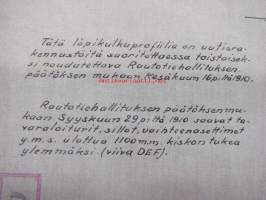 Tätä läpikulkuprofiilia on uutisra-
kennustöitä suoritettaessa toistaisek-
si noudatettava Rautatiehallituksen
päätöksen mukaan Kesäkuun 16 p:ltä 1910.
Rautatiehallituksen päätöksen mu-
kaan Syyskuun 29 p:ltä 1910 saavat ta-
varalaiturit, sillat, vaihteenasettimet
y.m.s. ulottua 1100 mm. kiskon tukea
ylemmäksi (viiva DEF).